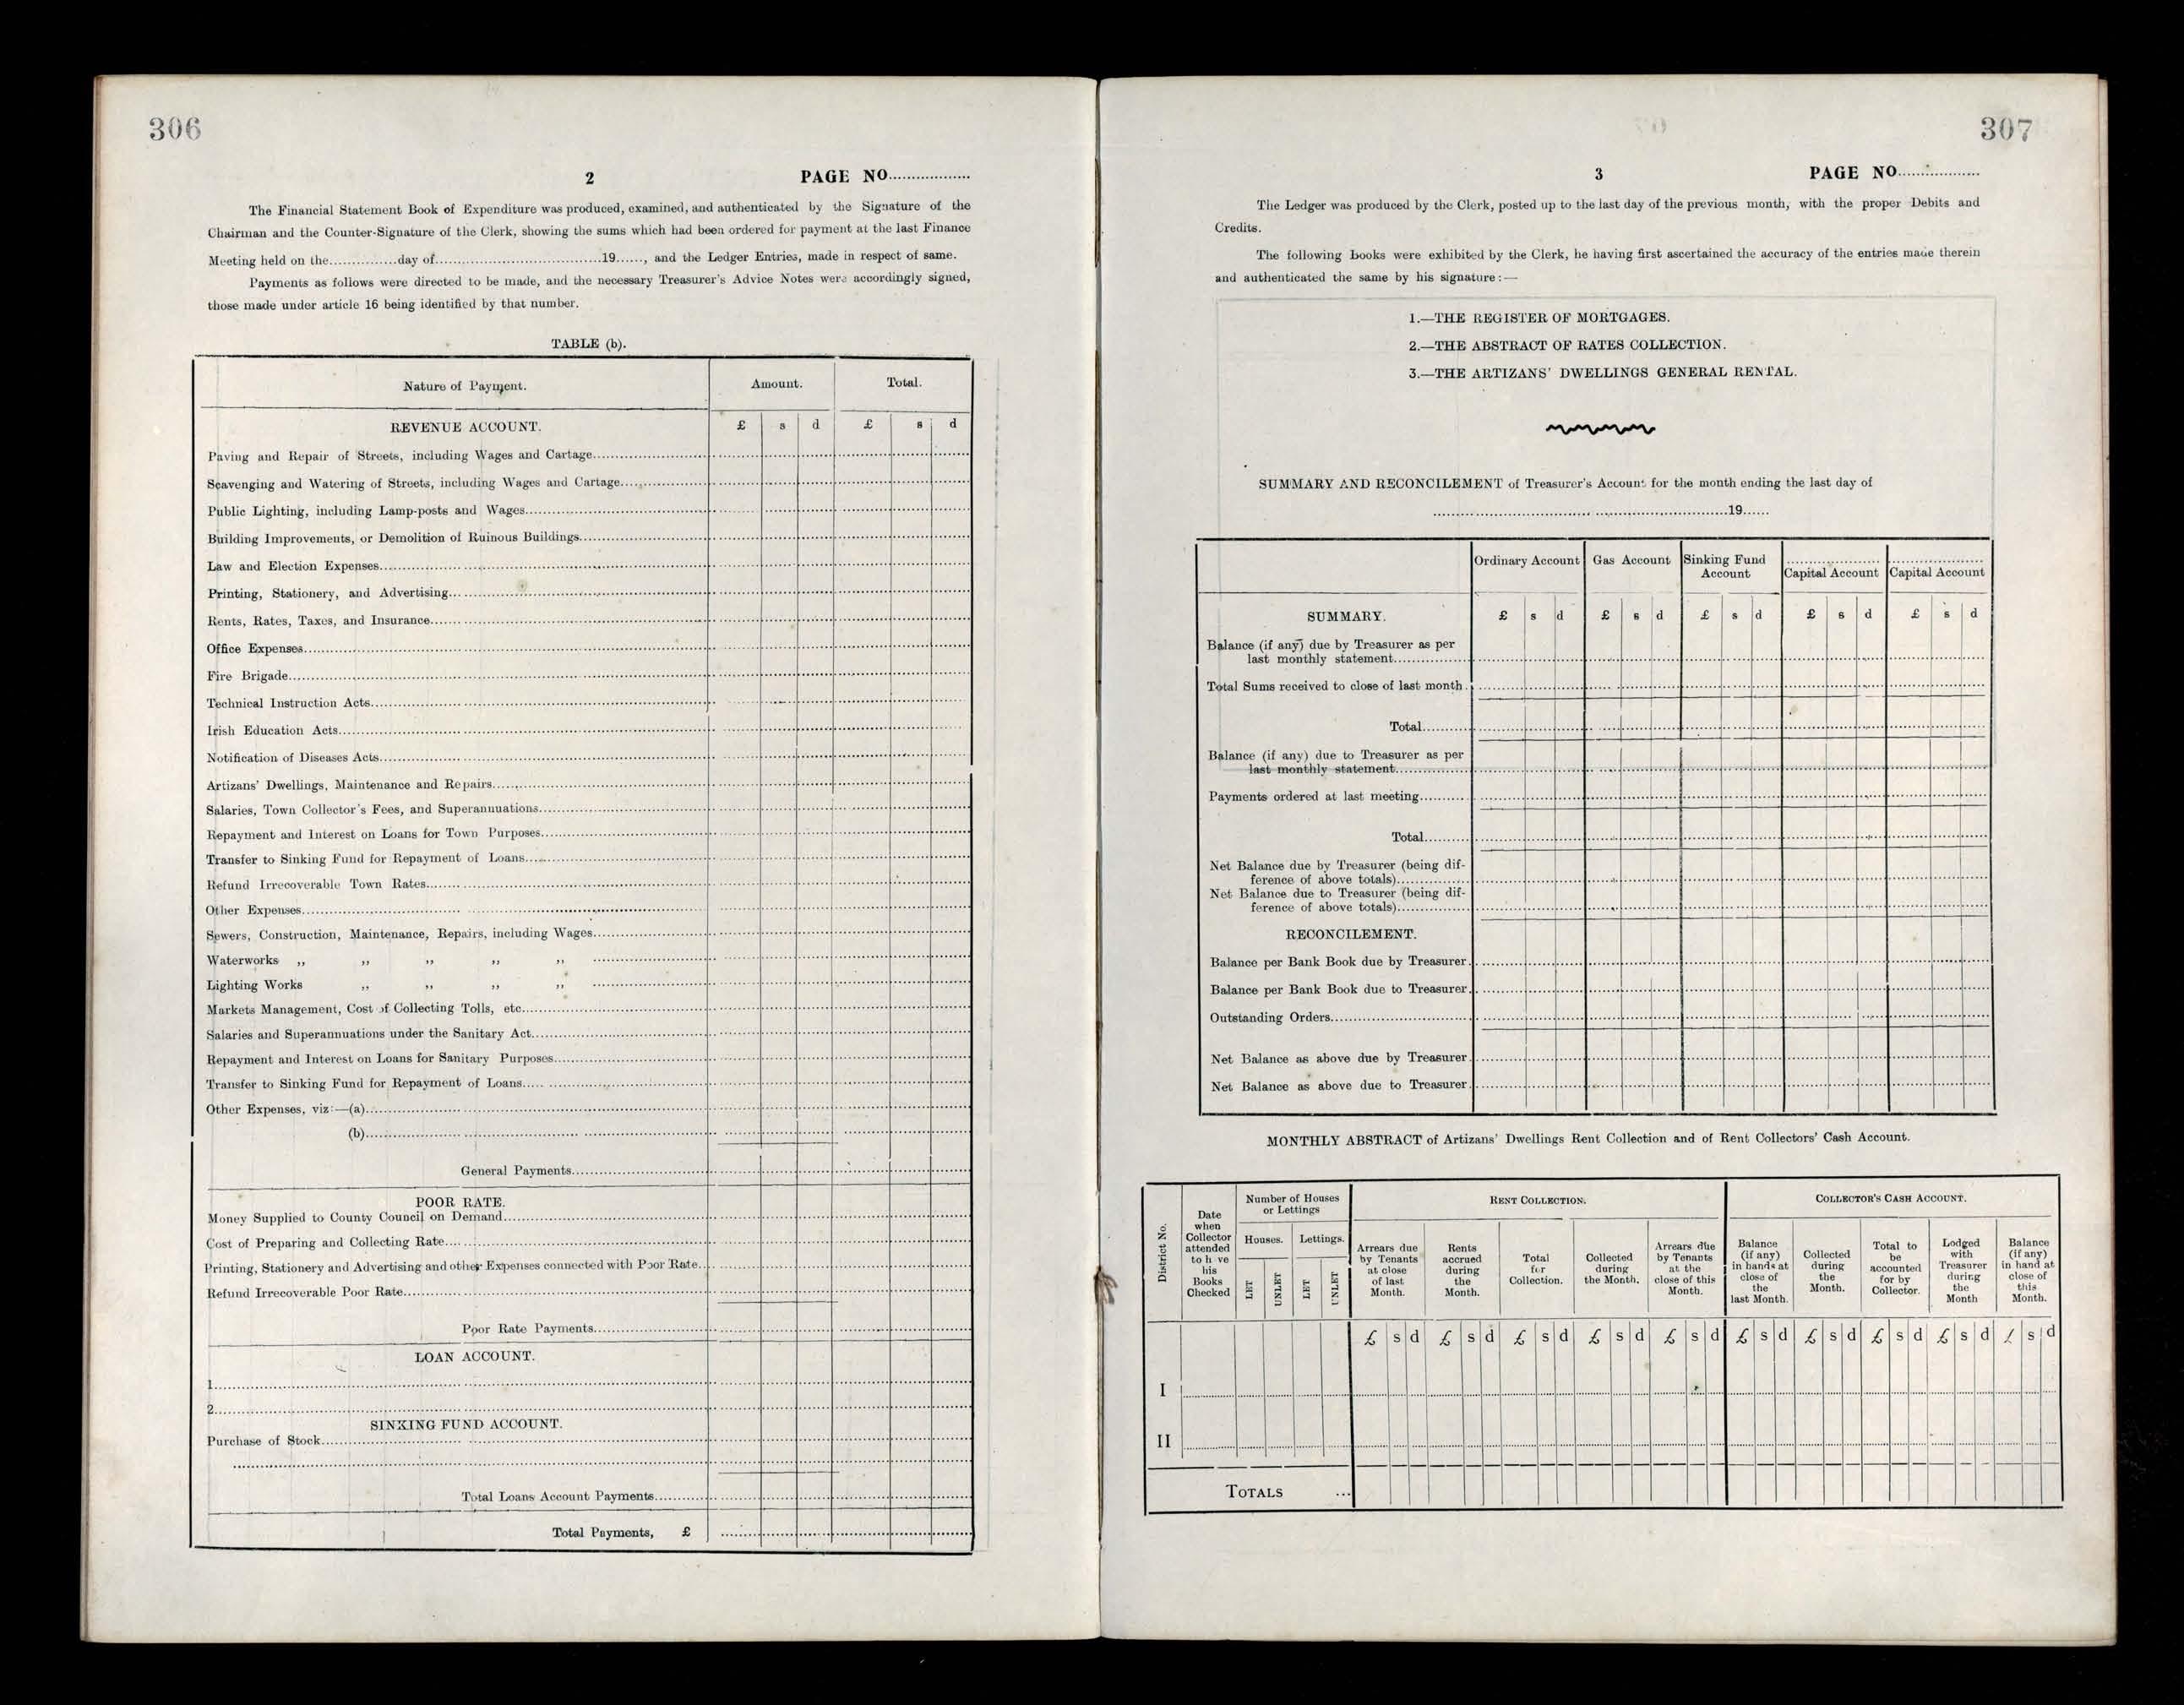 306
2 PAGE NO..................
The Financial Statement Book of Expenditure was produced, examined, and authenticated by the Signature of the
Chairman and the Counter-Signature of the Clerk, showing the sums which had been ordered for payment at the last Finance
Meeting held on the...............day of.....................................19......, and the Ledger Entries, made in respect of same.
Payments as follows were directed to be made, and the necessary Treasurer's Advice Notes were accordingly signed,
those made under article 16 being identified by that number.
TABLE (b).
Nature of Payment. Amount. Total.
REVENUE ACCOUNT. £ s d £ s d
Paving and Repair of Streets, including Wages and Cartage
Scavenging and Watering of Streets, including Wages and Cartage
Public Lighting, including Lamp-posts and Wages
Building Improvements, or Demolition of Ruinous Buildings
Law and Election Expenses
Printing, Stationery, and Advertising
Rents, Rates, Taxes, and Insurance
Office Expenses
Fire Brigade
Technical Instruction Acts
Irish Education Acts
Notification of Diseases Acts
Artizans' Dwellings, Maintenance and Repairs
Salaries, Town Collector's Fees, and Superannuations
Repayment and Interest on Loans for Town Purposes
Transfer to Sinking Fund for Repayment of Loans
Refund Irrecoverable Town Rates
Other Expenses
Sewers, Construction, Maintenance, Repairs, including Wages
Waterworks ,, ,, ,, ,, ,,
Lighting Works ,, ,, ,, ,,
Markets Management, Cost of Collecting Tolls, etc.
Salaries and Superannuations under the Sanitary Act
Repayment and Interest on Loans for Sanitary Purposes
Transfer to Sinking Fund for Repayment of Loans
Other Expenses, viz:—(a)
(b)
General Payments
POOR RATE.
Money Supplied to County Council on Demand
Cost of Preparing and Collecting Rate
Printing, Stationery and Advertising and other Expenses connected with Poor Rate
Refund Irrecoverable Poor Rate
Poor Rate Payments
LOAN ACCOUNT.
1
2
SINKING FUND ACCOUNT.
Purchase of Stock
Total Loans Account Payments
Total Payments, £
307
3 PAGE NO..................
The Ledger was produced by the Clerk, posted up to the last day of the previous month, with the proper Debits and
Credits.
The following books were exhibited by the Clerk, he having first ascertained the accuracy of the entries made therein
and authenticated the same by his signature:—
1.—THE REGISTER OF MORTGAGES.
2.—THE ABSTRACT OF RATES COLLECTION.
3.—THE ARTIZANS' DWELLINGS GENERAL RENTAL.
SUMMARY AND RECONCILEMENT of Treasurer's Account for the month ending the last day of
..................................................19......
Ordinary Account Gas Account Sinking Fund Account Capital Account Capital Account
SUMMARY. £ s d £ s d £ s d £ s d £ s d
Balance (if any) due by Treasurer as per
last monthly statement
Total Sums received to close of last month
Total
Balance (if any) due to Treasurer as per
last monthly statement
Payments ordered at last meeting
Total
Net Balance due by Treasurer (being dif-
ference of above totals)
Net Balance due to Treasurer (being dif-
ference of above totals)
RECONCILEMENT.
Balance per Bank Book due by Treasurer
Balance per Bank Book due to Treasurer
Outstanding Orders
Net Balance as above due by Treasurer
Net Balance as above due to Treasurer
MONTHLY ABSTRACT of Artizans' Dwellings Rent Collection and of Rent Collectors' Cash Account.
District No.
Date
when
Collector
attended
to h ve
his
Books
Checked
Number of Houses
or Lettings
Houses. Lettings.
LET UNLET LET UNLET
RENT COLLECTION.
Arrears due
by Tenants
at close
of last
Month.
Rents
accrued
during
the
Month.
Total
for
Collection.
Collected
during
the Month.
Arrears due
by Tenants
at the
close of this
Month.
COLLECTOR'S CASH ACCOUNT.
Balance
(if any)
in hands at
close of
the
last Month.
Collected
during
the
Month.
Total to
be
accounted
for by
Collector.
Lodged
with
Treasurer
during
the
Month
Balance
(if any)
in hand at
close of
this
Month.
£ s d £ s d £ s d £ s d £ s d £ s d £ s d £ s d £ s d £ s d
I
II
TOTALS ...